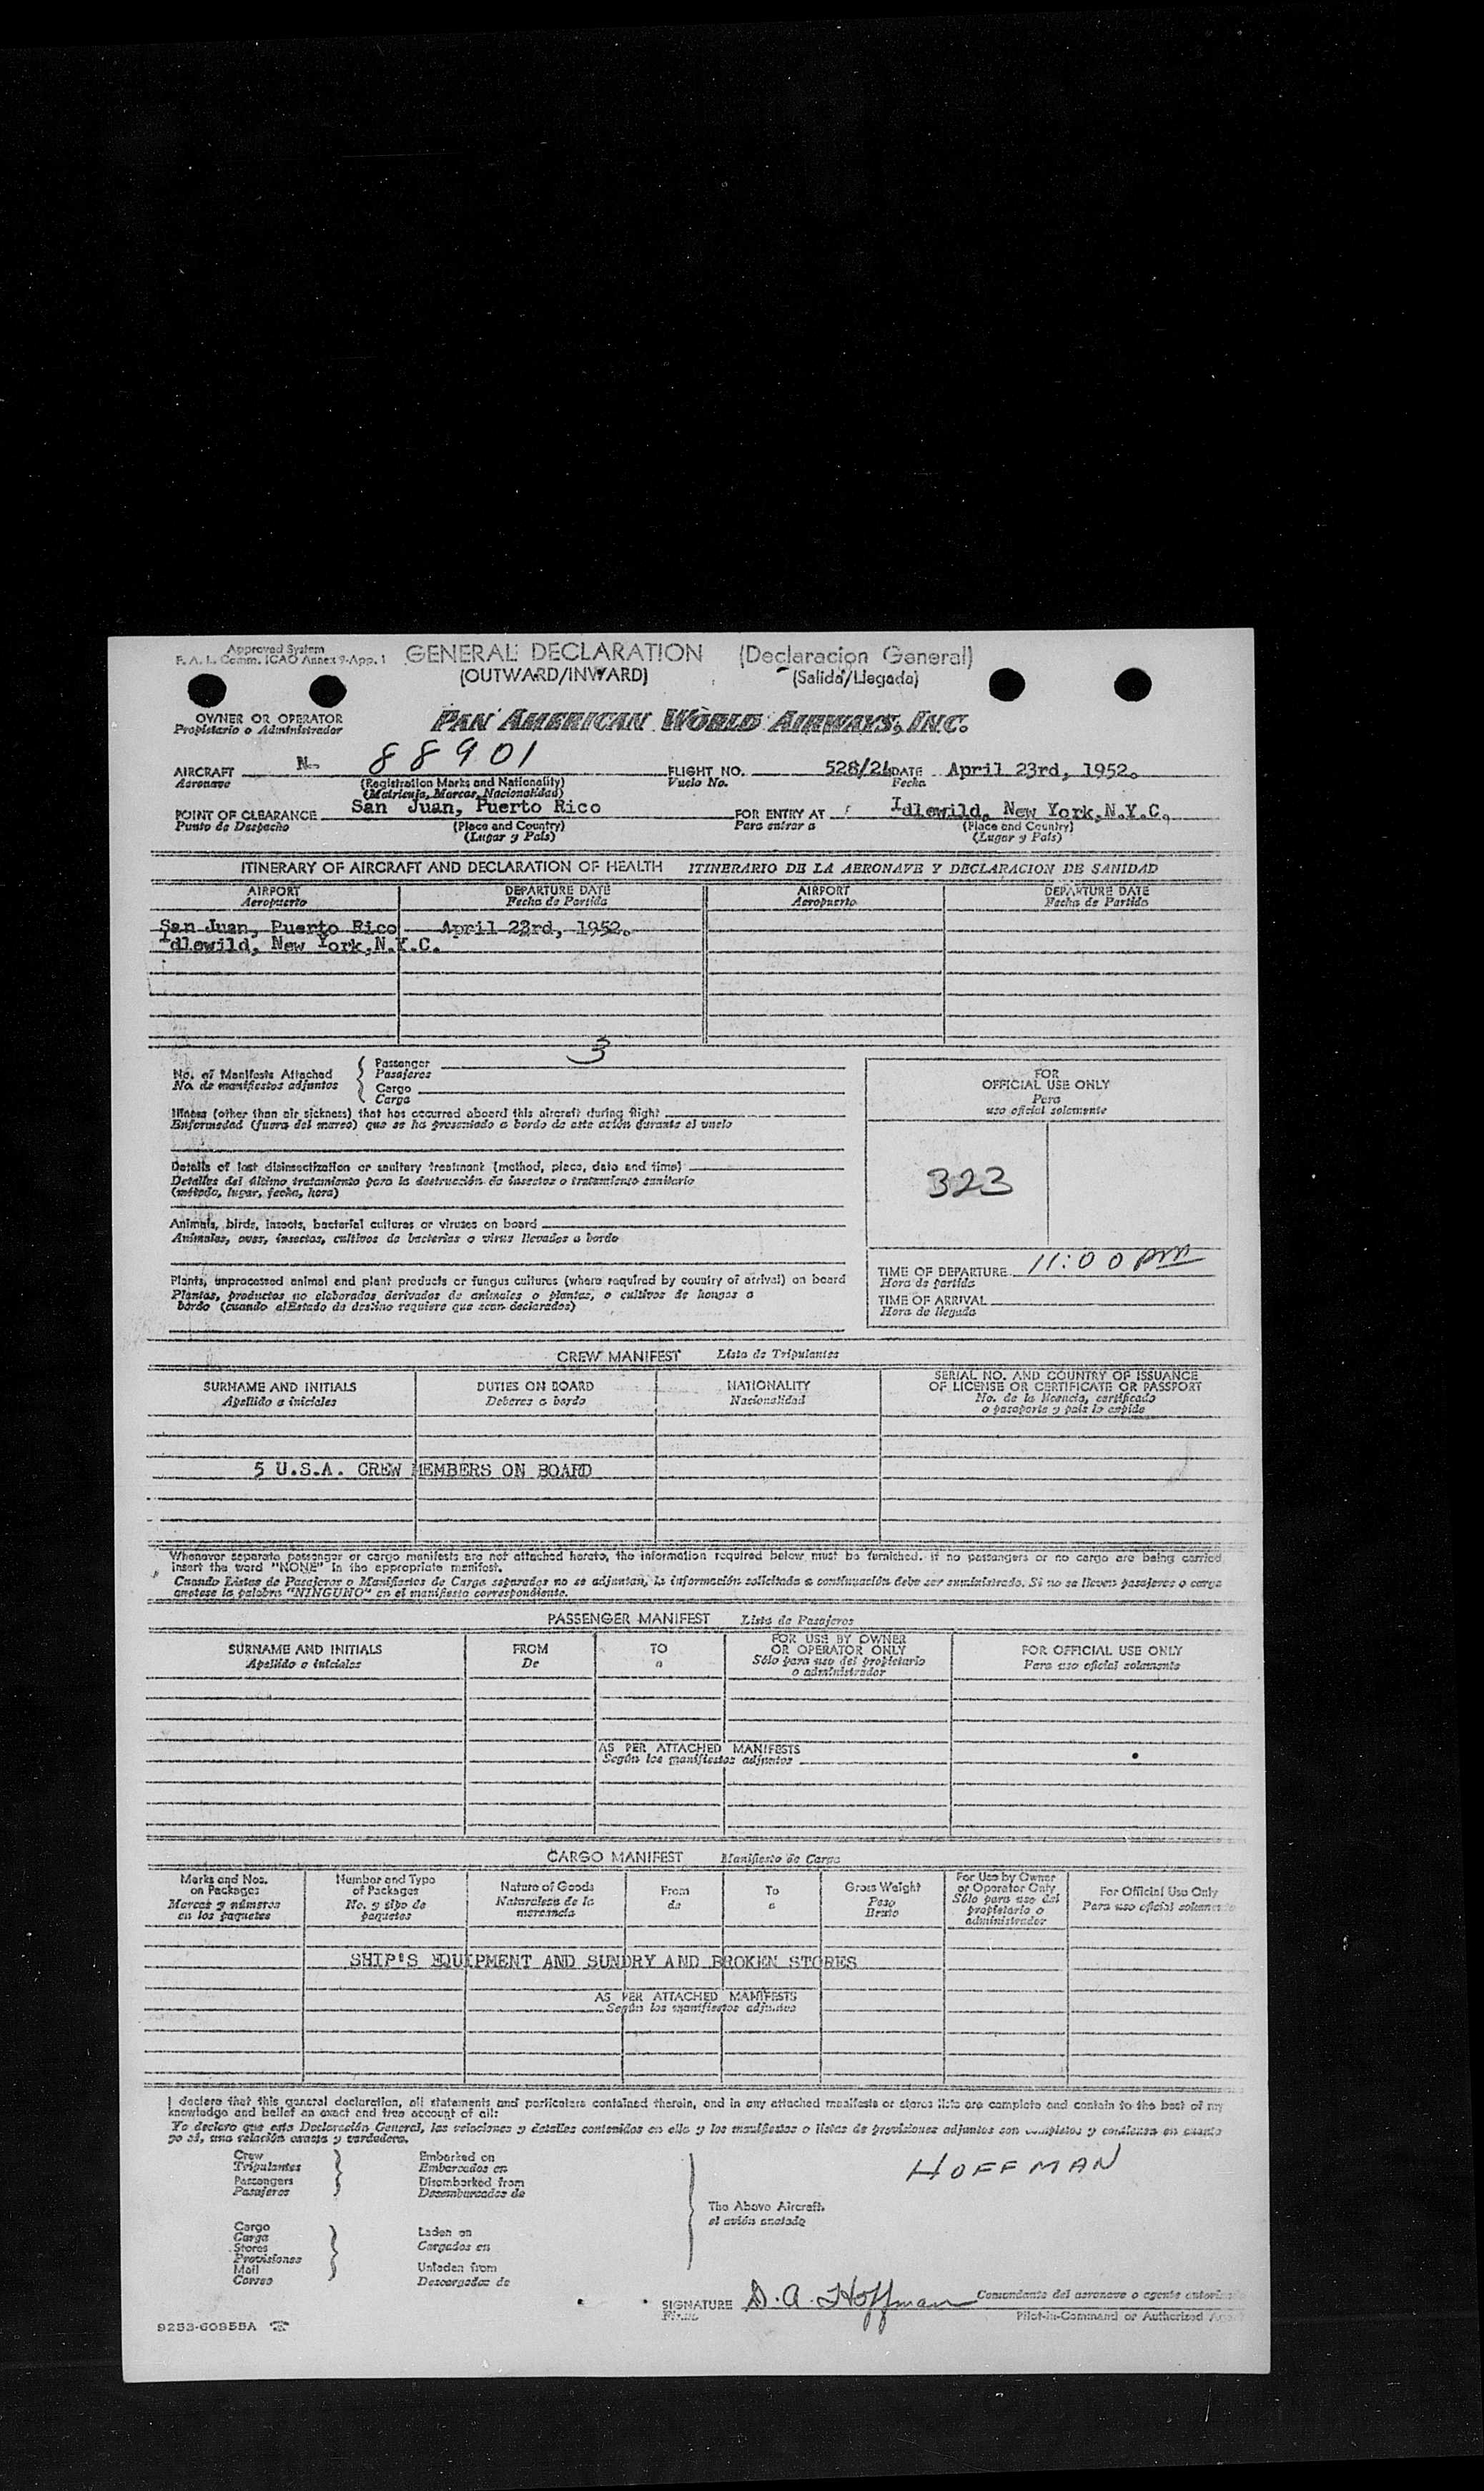 Approved System
F. A. L. Comm. ICAO Annex 9-App. 1
GENERAL DECLARATION (Declaracion General)
(OUTWARD/INWARD) (Salida/Llegada)
OWNER OR OPERATOR
Propietario o Administrador
PAN AMERICAN WORLD AIRWAYS, INC.
AIRCRAFT N- 88901 FLIGHT NO. 528/24 DATE April 23rd, 1952.
Aeronave (Registration Marks and Nationality) Vuelo No. Fecha
(Matricula, Marcas, Nacionalidad)
POINT OF CLEARANCE San Juan, Puerto Rico FOR ENTRY AT Idlewild, New York, N.Y.C.
Punto de Despacho (Place and Country) Para entrar a (Place and Country)
(Lugar y País) (Lugar y País)
ITINERARY OF AIRCRAFT AND DECLARATION OF HEALTH ITINERARIO DE LA AERONAVE Y DECLARACION DE SANIDAD
AIRPORT DEPARTURE DATE AIRPORT DEPARTURE DATE
Aeropuerto Fecha de Partida Aeropuerto Fecha de Partida
San Juan, Puerto Rico April 23rd, 1952.
Idlewild, New York, N.Y.C.
No. of Manifests Attached
No. de manifiestos adjuntos
Passenger 3
Pasajeros
Cargo
Carga
Illness (other than air sickness) that has occurred aboard this aircraft during flight
Enfermedad (fuera del mareo) que se ha presentado a bordo de este avión durante el vuelo
Details of last disinsectization or sanitary treatment (method, place, date and time)
Detalles del último tratamiento para la destrucción de insectos o tratamiento sanitario
(método, lugar, fecha, hora)
Animals, birds, insects, bacterial cultures or viruses on board
Animales, aves, insectos, cultivos de bacterias o virus llevados a bordo
Plants, unprocessed animal and plant products or fungus cultures (where required by country of arrival) on board
Plantas, productos no elaborados derivados de animales o plantas, o cultivos de hongos a
bordo (cuando el Estado de destino requiere que sean declarados)
FOR
OFFICIAL USE ONLY
Para
uso oficial solamente
323
TIME OF DEPARTURE 11:00 pm
Hora de partida
TIME OF ARRIVAL
Hora de llegada
CREW MANIFEST Lista de Tripulantes
SURNAME AND INITIALS DUTIES ON BOARD NATIONALITY SERIAL NO. AND COUNTRY OF ISSUANCE
OF LICENSE OR CERTIFICATE OR PASSPORT
Apellido e iniciales Deberes a bordo Nacionalidad No. de la licencia, certificado
o pasaporte y país lo expide
5 U.S.A. CREW MEMBERS ON BOARD
Whenever separate passenger or cargo manifests are not attached hereto, the information required below must be furnished. If no passengers or no cargo are being carried
insert the word "NONE" in the appropriate manifest.
Cuando Listas de Pasajeros o Manifiestos de Carga separados no se adjuntan, la información solicitada a continuación debe ser suministrada. Si no se lleven pasajeros o carga
anotese la palabra "NINGUNO" en el manifiesto correspondiente.
PASSENGER MANIFEST Lista de Pasajeros
SURNAME AND INITIALS FROM TO FOR USE BY OWNER
OR OPERATOR ONLY FOR OFFICIAL USE ONLY
Apellido e iniciales De a Sólo para uso del propietario
o administrador Para uso oficial solamente
AS PER ATTACHED MANIFESTS
Según los manifiestos adjuntos
CARGO MANIFEST Manifiesto de Carga
Marks and Nos.
on Packages
Marcas y números
en los paquetes
Number and Type
of Packages
No. y tipo de
paquetes
Nature of Goods
Naturaleza de la
mercancía
From
de
To
a
Gross Weight
Peso
Bruto
For Use by Owner
or Operator Only
Sólo para uso del
propietario o
administrador
For Official Use Only
Para uso oficial solamente
SHIP'S EQUIPMENT AND SUNDRY AND BROKEN STORES
AS PER ATTACHED MANIFESTS
Según los manifiestos adjuntos
I declare that this general declaration, all statements and particulars contained therein, and in any attached manifests or stores lists are complete and contain to the best of my
knowledge and belief an exact and true account of all:
Yo declaro que esta Declaración General, las relaciones y detalles contenidos en ella y los manifiestos o listas de provisiones adjuntos son completos y contienen en cuanto
yo sé, una relación exacta y verdadera.
Crew Embarked on
Tripulantes Embarcados en
Passengers Disembarked from
Pasajeros Desembarcados de
HOFFMAN
The Above Aircraft.
el avión anotado
Cargo
Carga Laden on
Stores Cargados en
Provisiones
Mail Unladen from
Correo Descargados de
SIGNATURE D. A. Hoffman Comandante del aeronave o agente
Firma Pilot-in-Command or Authorized
9253-60955A